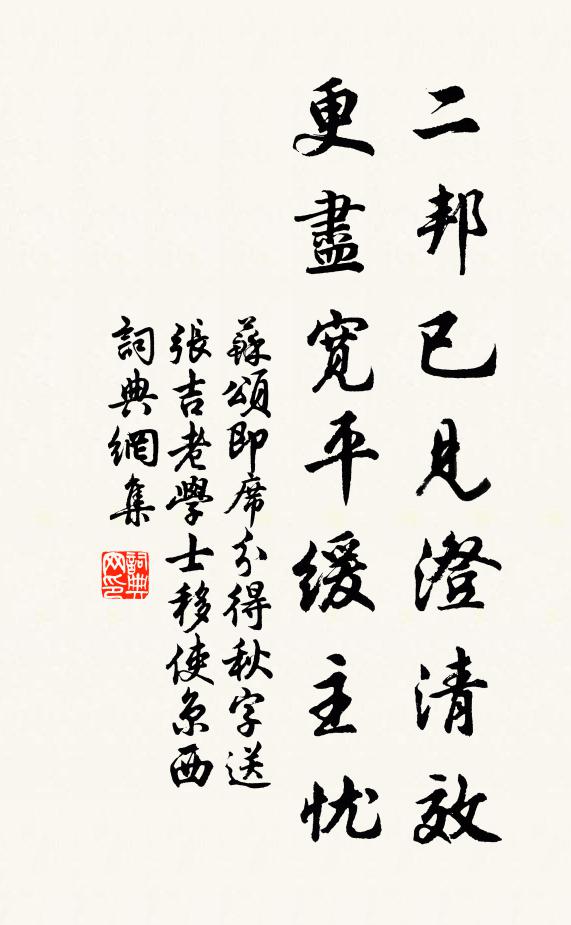 二邦已見澄清效
更盡寬平緩主忧
蘇頌即席分得秋字送
張吉老學士移使京西
詞典網集
詞典
网印